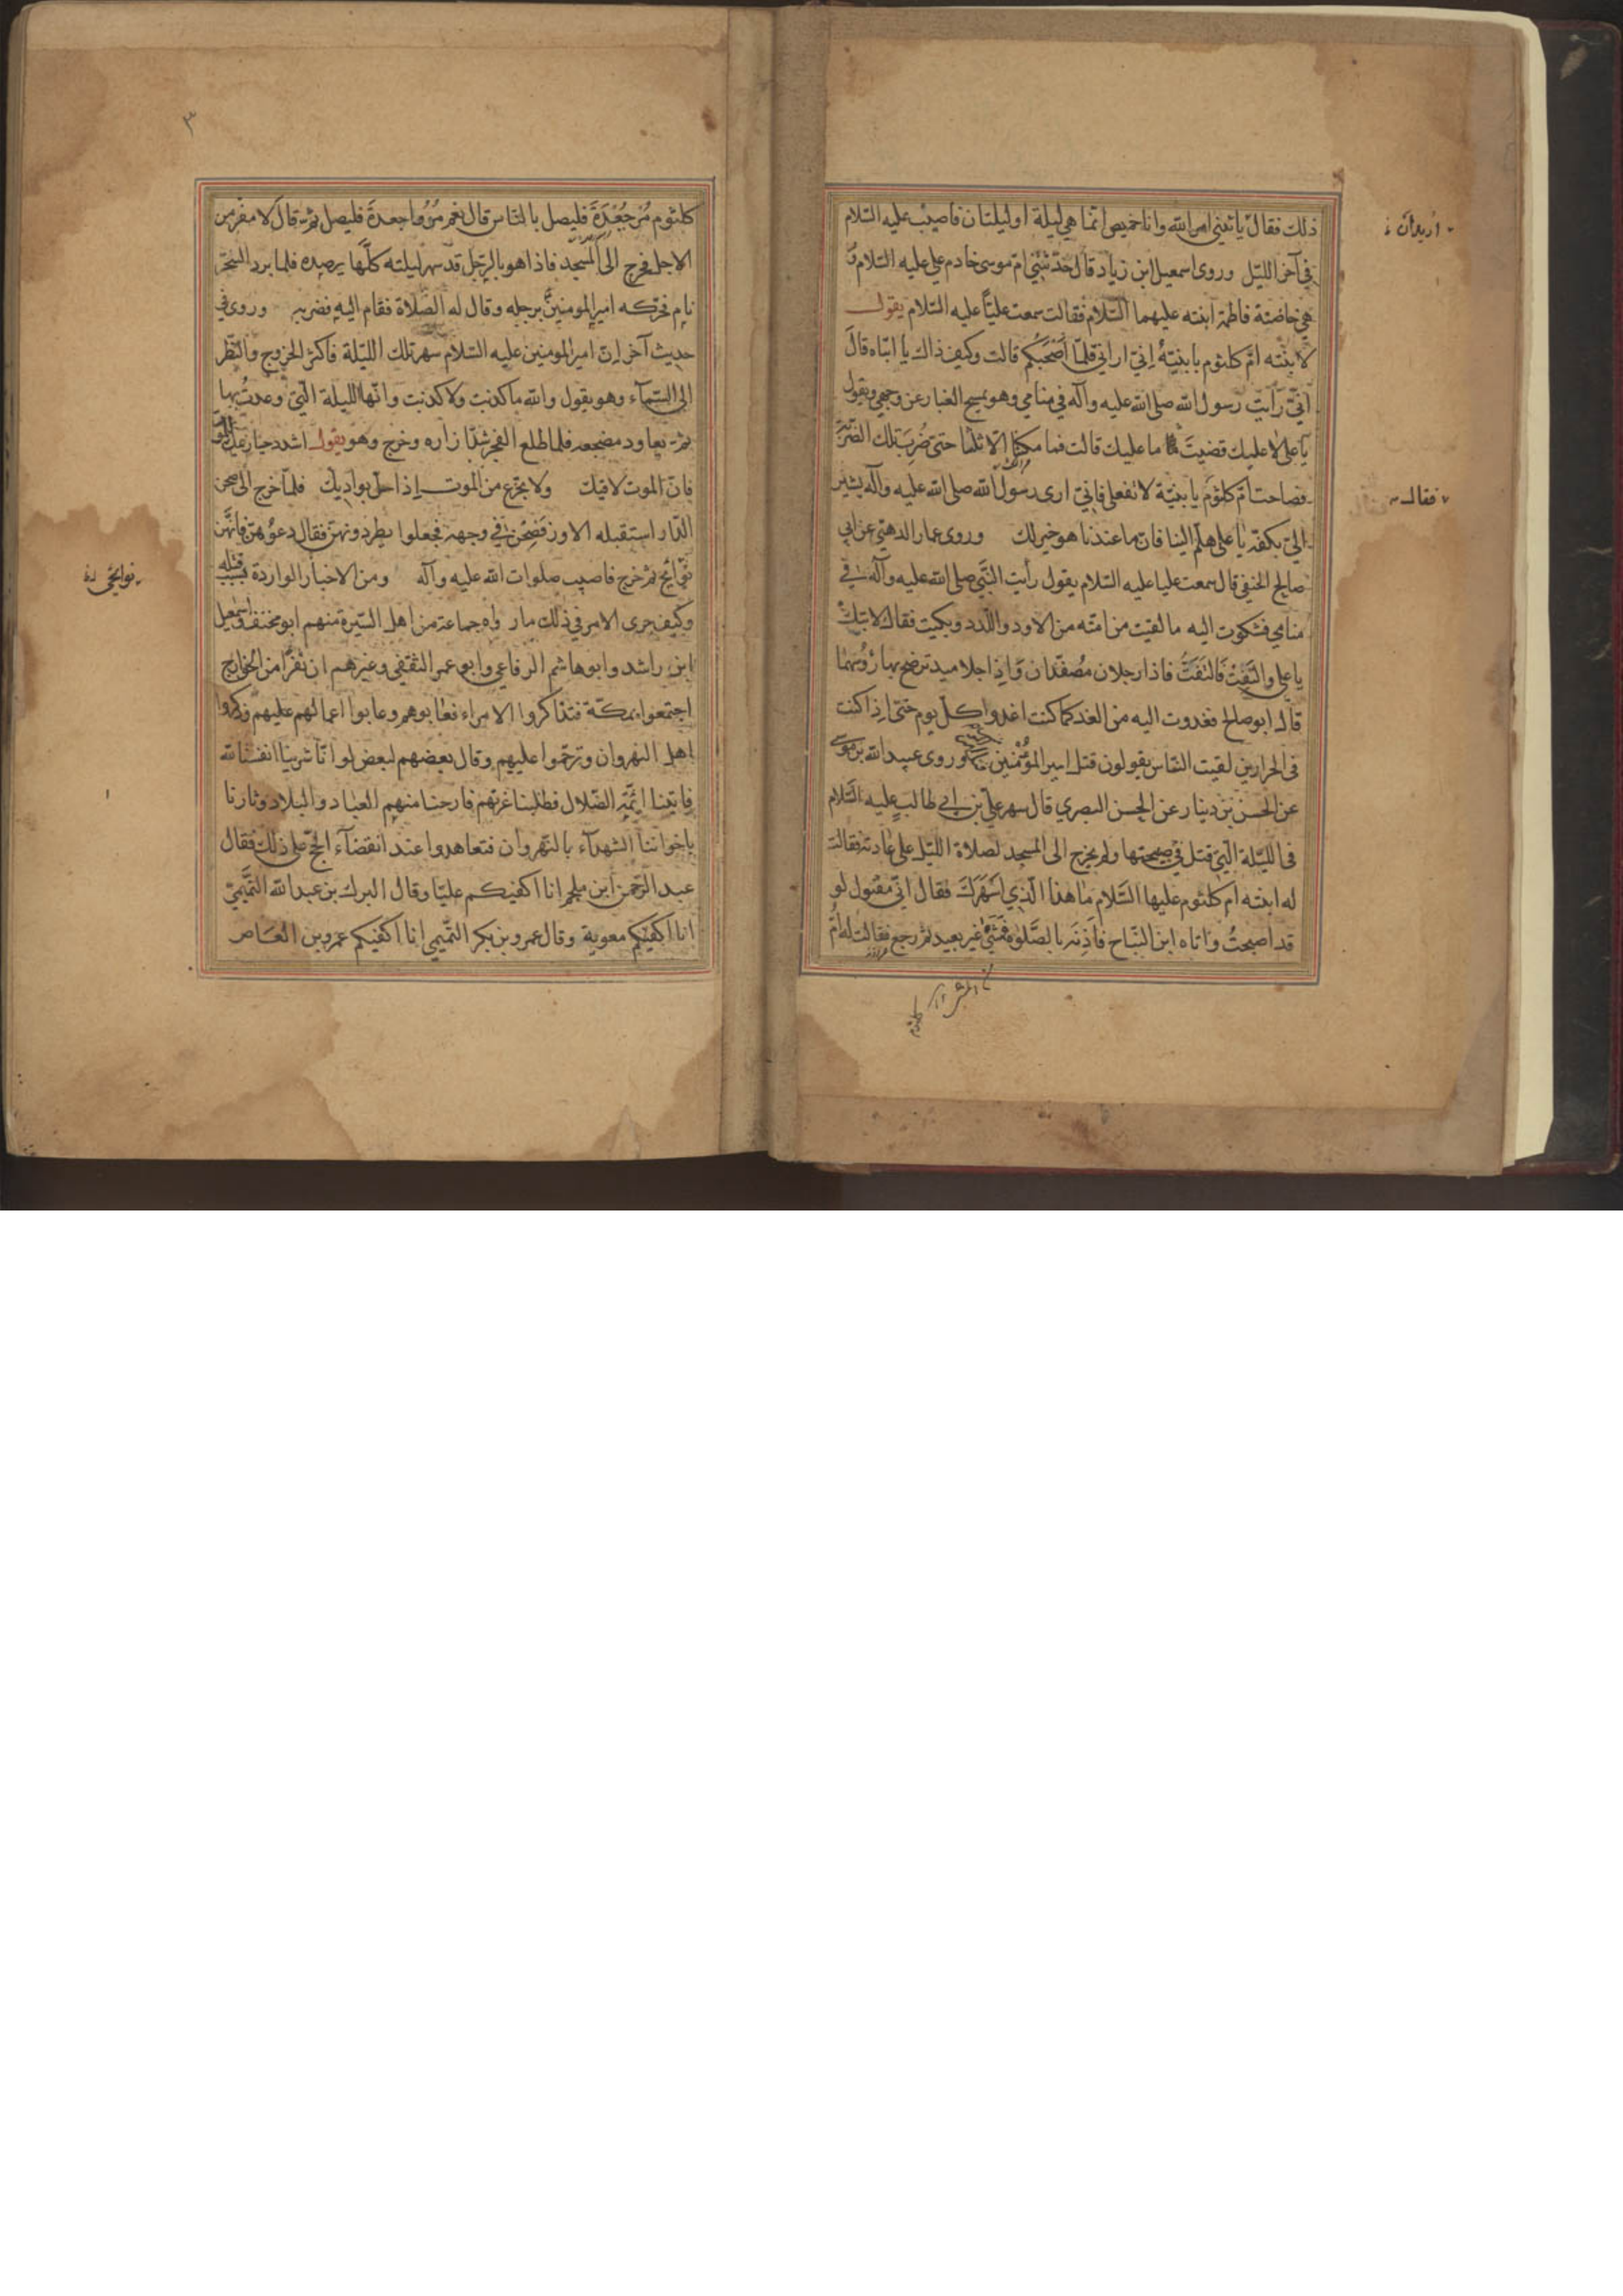 ذلك فقال يأتيني امر الله وانا خميص انما هي ليلة او ليلتان فاصيب عليه السلام
في آخر الليل وروى اسمعيل ابن زياد قال حدثتني ام موسى خادم علي عليه السلام و
هي حاضنة فاطمة ابنته عليهما السلام فقالت سمعت عليّاً عليه السلام يقول
لابنته ام كلثوم يا بنيّة اِنّي اراني قلّما اَصْحَبُكم قالت وكيف ذاك يا ابتاه قال
اِنّي رأيت رسول الله صلى الله عليه وآله في منامي وهو يمسح الغبار عن وجهي ويقول
يا علي لا عليك قضيتَ ما عليك قالت فما مكثنا الا ثلثا حتى ضُرِبَ تلك الضربة
فصاحت ام كلثوم يا بنيّة لا تفعلي فانّي ارى رسول الله صلى الله عليه وآله يشير
الىّ بكفّه يا علي هلمّ الينا فان ما عندنا هو خير لك وروى عمار الدهني عن ابي
صالح الحنفي قال سمعت عليا عليه السلام يقول رأيت النبي صلى الله عليه وآله في
منامي فشكوت اليه ما لقيت من امّته من الاود واللدد وبكيت فقال لا تبك
يا علي والتَفِتْ فَالتَفَتُّ فاذا رجلان مُصفّدان وَاِذا جلاميد ترضخ بها رؤسهما
قال ابو صالح فغدوت اليه من الغد كما كنت اغدوا كلّ يوم حتى اِذا كنت
في الجزارين لقيت الناس يقولون قتل امير المؤمنين وروى عبيد الله بن موسى
عن الحسن بن دينار عن الحسن البصري قال سهر علي بن ابي طالب عليه السلام
في الليلة التي قتل في صبيحتها ولم يخرج الى المسجد لصلاة الليل على عادته فقالت
له ابنته ام كلثوم عليها السلام ما هذا الذي اَسْهَرَكَ فقال اني مقتول لو
قد اصبحتُ واتاه ابن النبّاح فآذنه بالصلوة فمشى غير بعيد ثم رجع فقالت له امّ
اريد ان
فقال
٣
كلثوم مُرْ جُعْدَةَ فليصل بالنّاس قال نعم مُرُوا جعدةَ فليصل ثم قال لا مفر من
الاجل فخرج الى المسجد فاذا هو بالرّجل قد سهر ليلته كلّها يرصده فلما برد السحر
نام فحركه امير المومنين برجله وقال له الصلاة فقام اليه فضربه وروى في
حديث آخر انّ امير المومنين عليه السلام سهر تلك الليلة فاكثر الخروج والنظر
الى السمآء وهو يقول والله ما كذبت ولا كذبت وانّها الليلة الّتي وعدتُ بها
ثم يعاود مضجعه فلما طلع الفجر شدّ ازاره وخرج وهو يقول اشدد حيازيمك للموت
فانّ الموت لاقيك ولا تجزع من الموت إذا حلّ بواديك فلمّا خرج الى صحن
الدار استقبله الاوز فَصِحْنَ في وجهه فجعلوا يطردونهنّ فقال دعُوهنّ فانّهنّ
نوائح ثم خرج فاصيب صلوات الله عليه وآله ومن الاخبار الواردة بسبب قتله
وكيف جرى الامر في ذلك ما رواه جماعة من اهل السّيرة منهم ابو مخنف واسمعيل
ابن راشد وابو هاشم الرفاعي وابو عمر الثقفي وغيرهم ان نفرًا من الخوارج
اجتمعوا بمكّة فتذاكروا الامراء فعابوهم وعابوا اعمالهم عليهم وذكروا
اهل النهروان وترحّموا عليهم وقال بعضهم لبعض لو انّا شرينا انفسنا لله
فاتينا ائمّة الضّلال فطلبنا غرتهم فارحنا منهم العباد والبلاد وثارنا
باخواننا الشهدآء بالنّهروان فتعاهدوا عند انقضآء الحجّ على ذلك فقال
عبد الرّحمن ابن ملجم انا اكفيكم عليّا وقال البرك بن عبد الله التَّميميّ
انا اكفيكم معوية وقال عمرو بن بكر التّميمي انا اكفيكم عمرو بن العاص